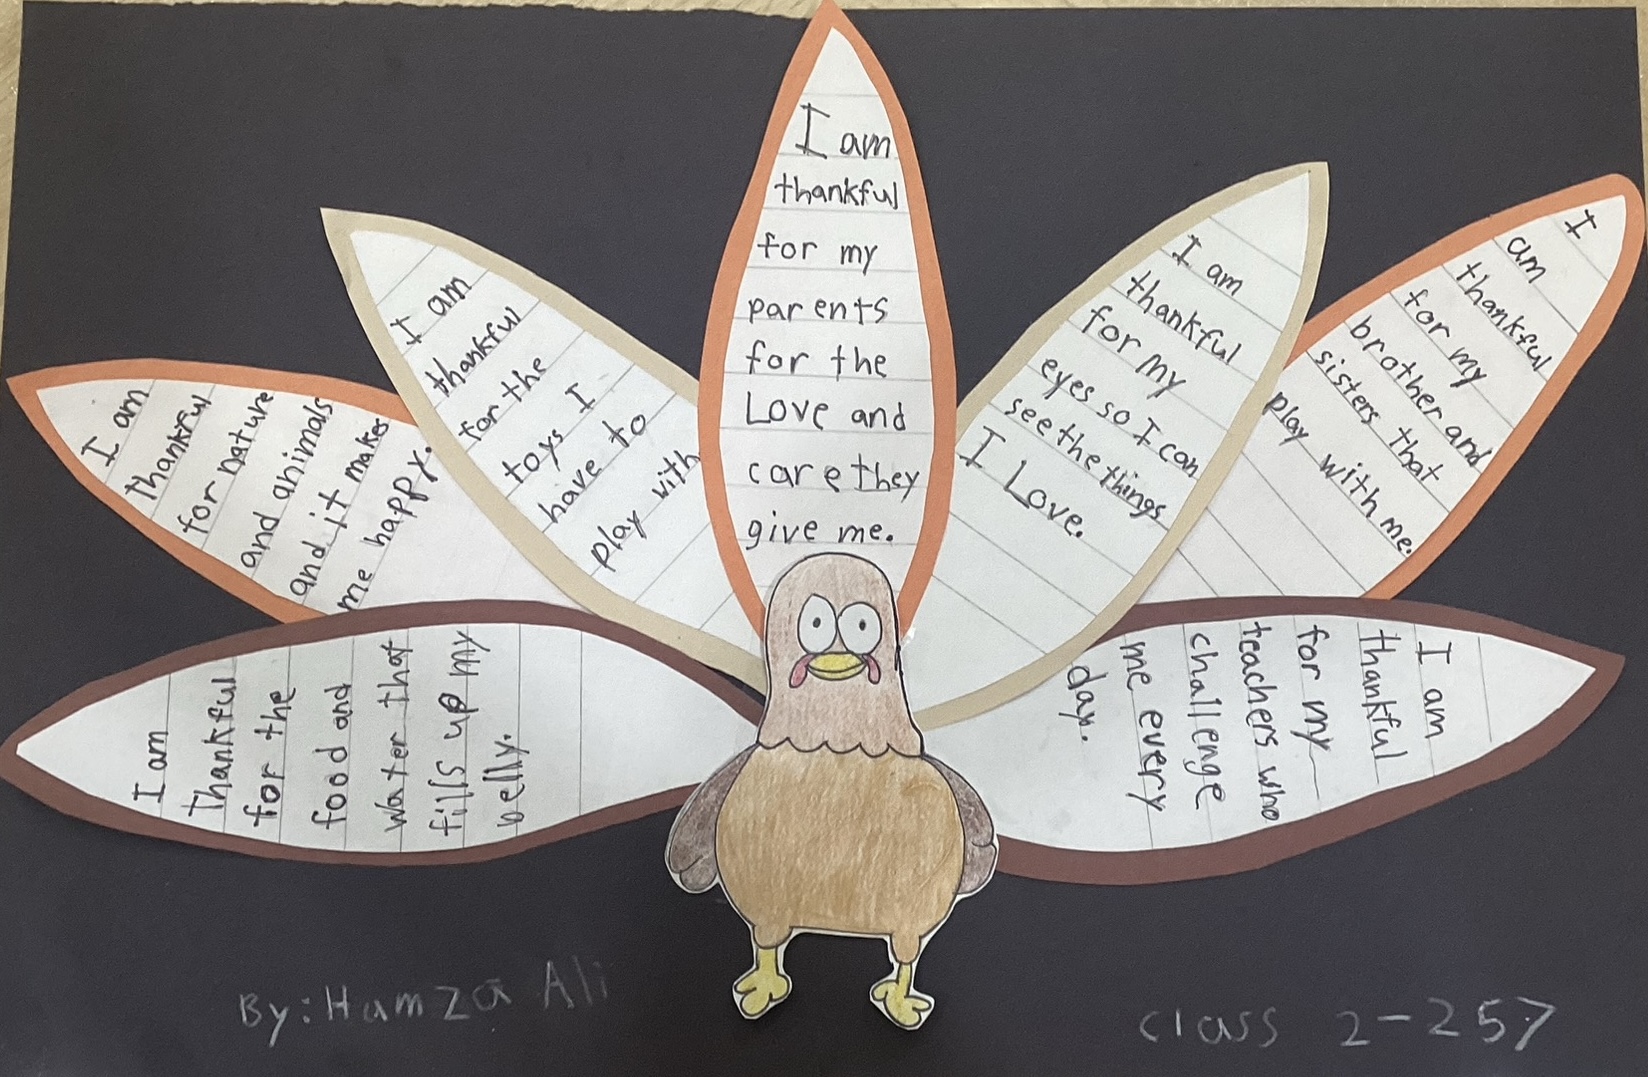 I am
Thankful
for the
food and
water that
fills up my
belly.
I am
thankful
for nature
and animals
and it makes
me happy.
I am
thankful
for the
toys I
have to
play with
I am
thankful
for my
parents
for the
Love and
care they
give me.
I am
thankful
for my
eyes so I can
see the things
I Love.
I
am
thankful
for my
brother and
sisters that
play with me.
I am
thankful
for my
teachers who
challenge
me every
day.
By: Hamza Ali
class 2-257